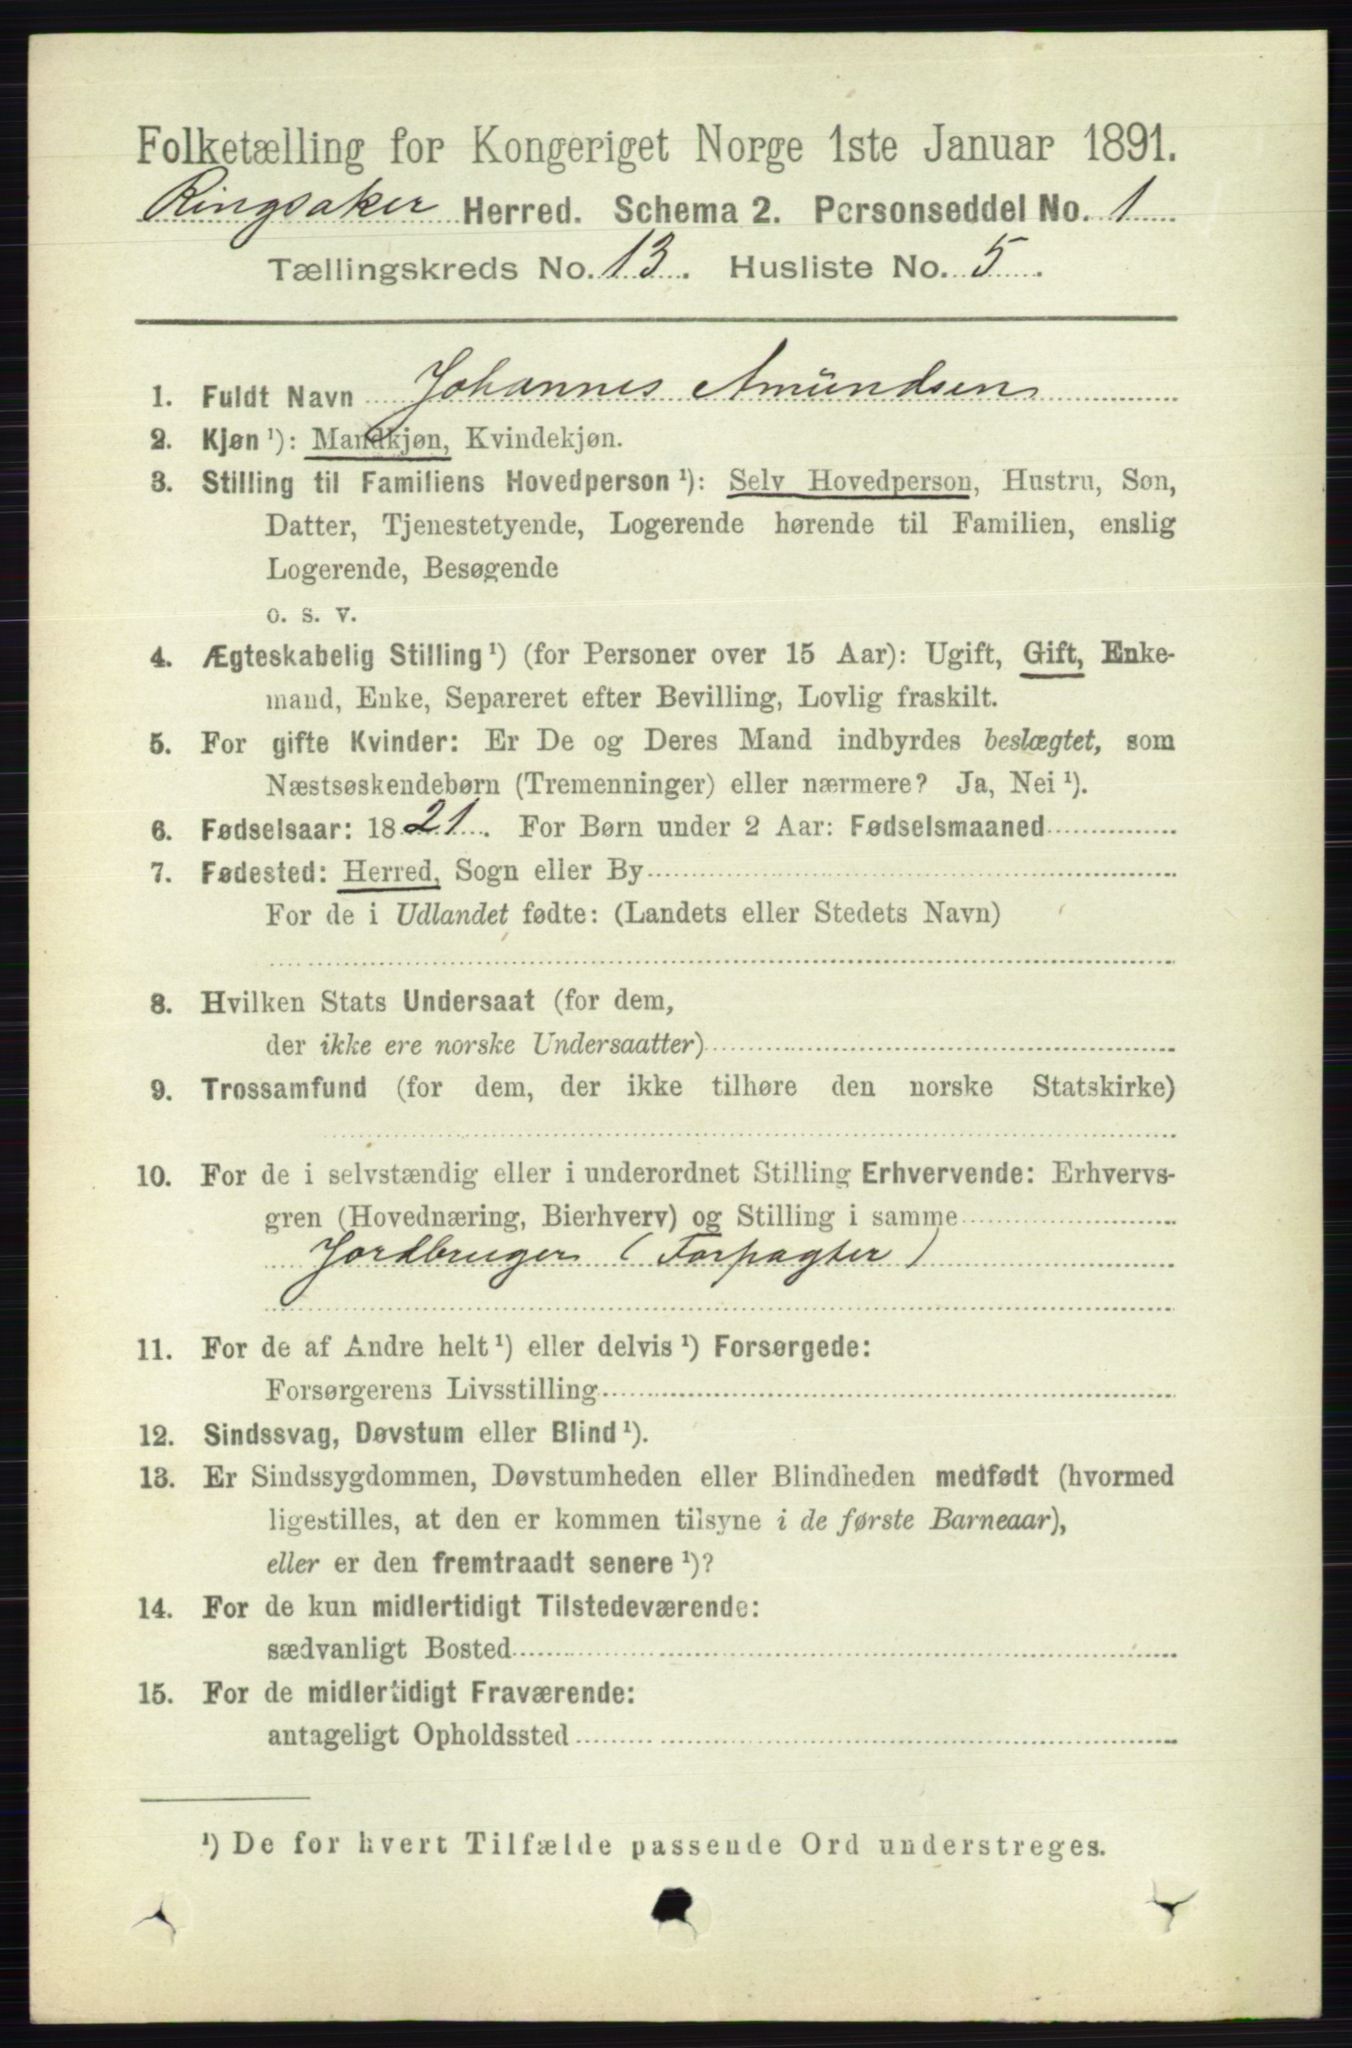 Folketælling for Kongeriget Norge 1ste Januar 1891.
Ringsaker Herred. Schema 2. Personseddel No. 1
Tællingskreds No. 13. Husliste No. 5.
1. Fuldt Navn Johannes Amundsen
2. Kjøn ¹): Mandkjøn, Kvindekjøn.
3. Stilling til Familiens Hovedperson ¹): Selv Hovedperson, Hustru, Søn,
Datter, Tjenestetyende, Logerende hørende til Familien, enslig
Logerende, Besøgende
o. s. v.
4. Ægteskabelig Stilling ¹) (for Personer over 15 Aar): Ugift, Gift, Enke-
mand, Enke, Separeret efter Bevilling, Lovlig fraskilt.
5. For gifte Kvinder: Er De og Deres Mand indbyrdes beslægtet, som
Næstsøskendebørn (Tremenninger) eller nærmere? Ja, Nei ¹).
6. Fødselsaar: 1821. For Børn under 2 Aar: Fødselsmaaned
7. Fødested: Herred, Sogn eller By
For de i Udlandet fødte: (Landets eller Stedets Navn)
8. Hvilken Stats Undersaat (for dem,
der ikke ere norske Undersaatter)
9. Trossamfund (for dem, der ikke tilhøre den norske Statskirke)
10. For de i selvstændig eller i underordnet Stilling Erhvervende: Erhvervs-
gren (Hovednæring, Bierhverv) og Stilling i samme
Jordbruger (Forpagter)
11. For de af Andre helt ¹) eller delvis ¹) Forsørgede:
Forsørgerens Livsstilling
12. Sindssvag, Døvstum eller Blind ¹).
13. Er Sindssygdommen, Døvstumheden eller Blindheden medfødt (hvormed
ligestilles, at den er kommen tilsyne i de første Barneaar),
eller er den fremtraadt senere ¹)?
14. For de kun midlertidigt Tilstedeværende:
sædvanligt Bosted
15. For de midlertidigt Fraværende:
antageligt Opholdssted
¹) De for hvert Tilfælde passende Ord understreges.